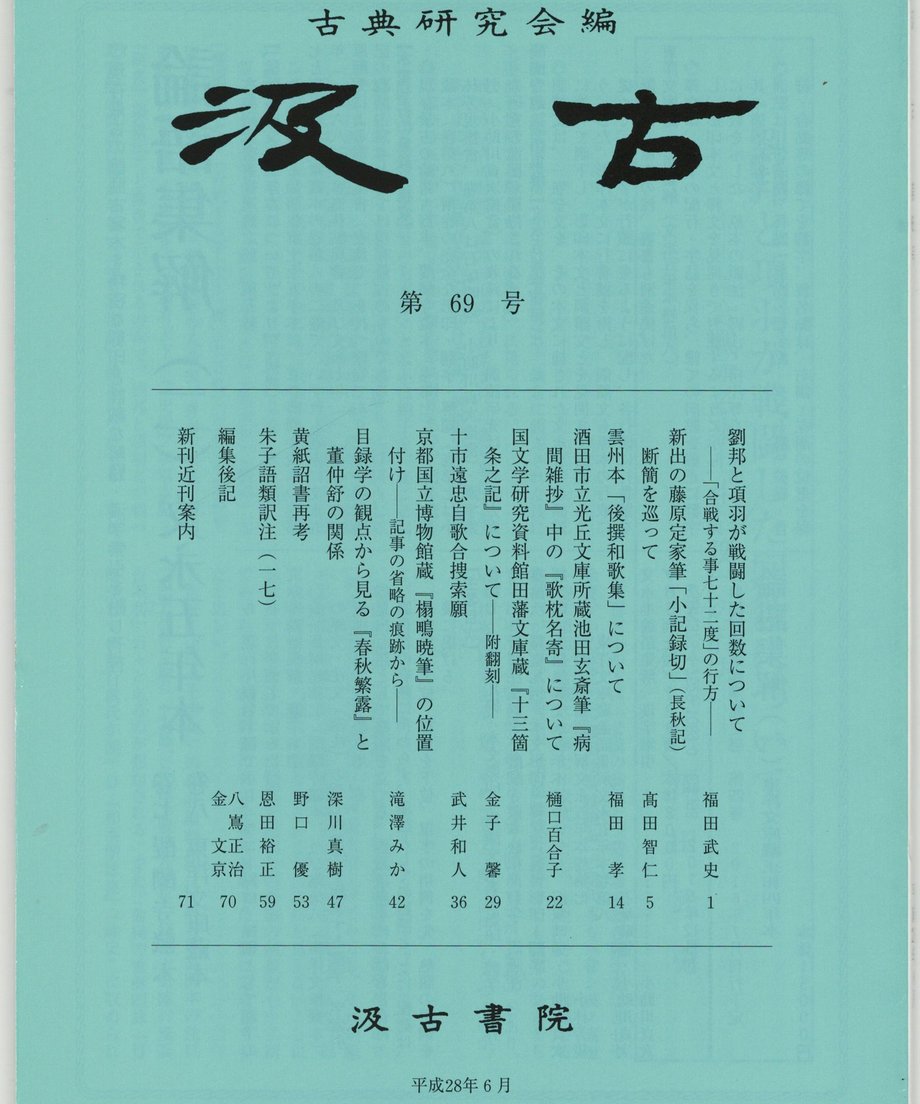 古典研究会編
汲古
第 69 号
劉邦と項羽が戦闘した回数について
――「合戦する事七十二度」の行方――
福田武史 1
新出の藤原定家筆「小記録切」(長秋記)
断簡を巡って
髙田智仁 5
雲州本「後撰和歌集」について
福田 孝 14
酒田市立光丘文庫所蔵池田玄斎筆『病
間雑抄』中の『歌枕名寄』について
樋口百合子 22
国文学研究資料館田藩文庫蔵『十三箇
条之記』について――附翻刻――
金子 馨 29
十市遠忠自歌合捜索願
武井和人 36
京都国立博物館蔵『榻鴫暁筆』の位置
付け――記事の省略の痕跡から――
滝澤みか 42
目録学の観点から見る『春秋繁露』と
董仲舒の関係
深川真樹 47
黄紙詔書再考
野口 優 53
朱子語類訳注(一七)
恩田裕正 59
編集後記
八嶌正治
金 文京 70
新刊近刊案内
71
汲古書院
平成28年6月